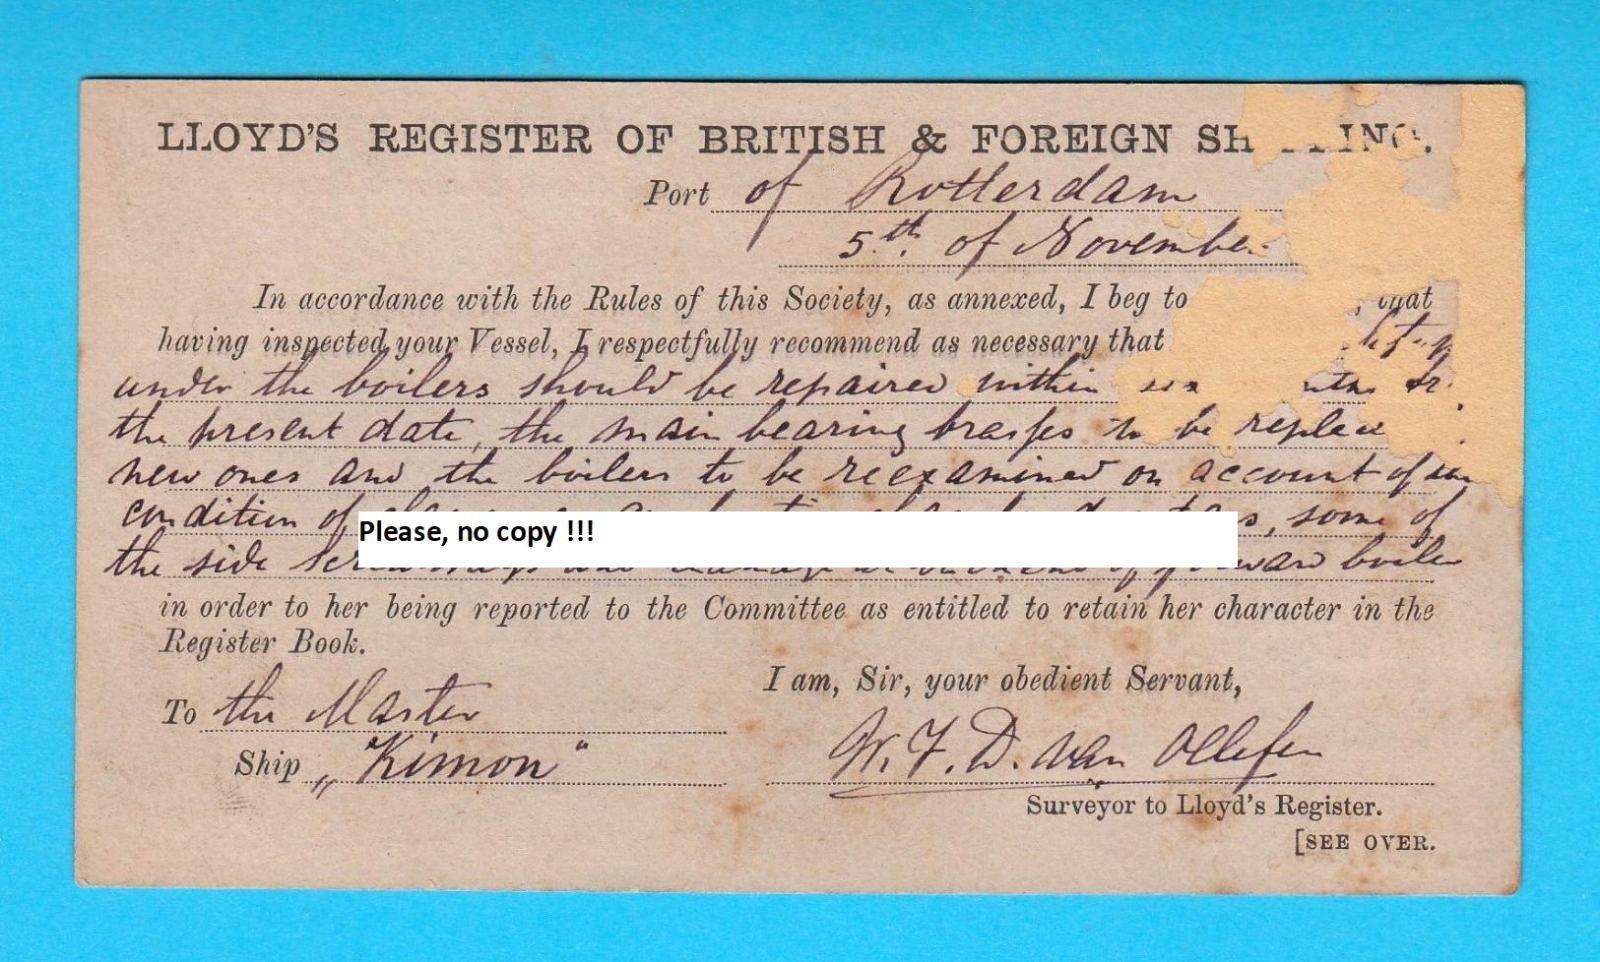 LLOYD'S REGISTER OF BRITISH & FOREIGN
Port of Rotterdam
5th. of November
In accordance with the Rules of this Society, as annexed, I beg to , that
having inspected your Vessel, I respectfully recommend as necessary that
under the boilers should be repaired within
the present date, the main bearing brasses to be
new ones and the boilers to be reexamined on account of
condition of some of
Please, no copy !!!
the side boiler
in order to her being reported to the Committee as entitled to retain her character in the
Register Book.
I am, Sir, your obedient Servant,
To the Master
Ship „Kimon"
W. F. D. van Ollefen
Surveyor to Lloyd's Register.
[SEE OVER.